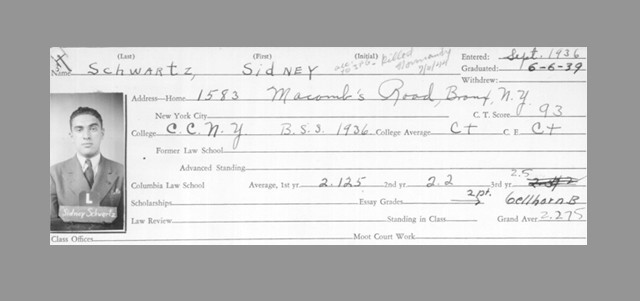 (Last) (First) (Initial) Killed Normandy Entered: Sept. 1936
Name Schwartz, Sidney Graduated: 6-6-39
Withdrew:
Address—Home 1583 Macomb's Road, Bronx, N.Y.
New York City C. T. Score 93
College C.C.N.Y B.S.S. 1936. College Average C+ C. E. C+
Former Law School
Advanced Standing
Columbia Law School Average, 1st yr. 2.125 2nd yr. 2.2 3rd yr. 2.5
Scholarships Essay Grades 2 pt. Gellhorn B
Law Review Standing in Class Grand Aver 2.275
Class Offices Moot Court Work
L
Sidney Schwartz